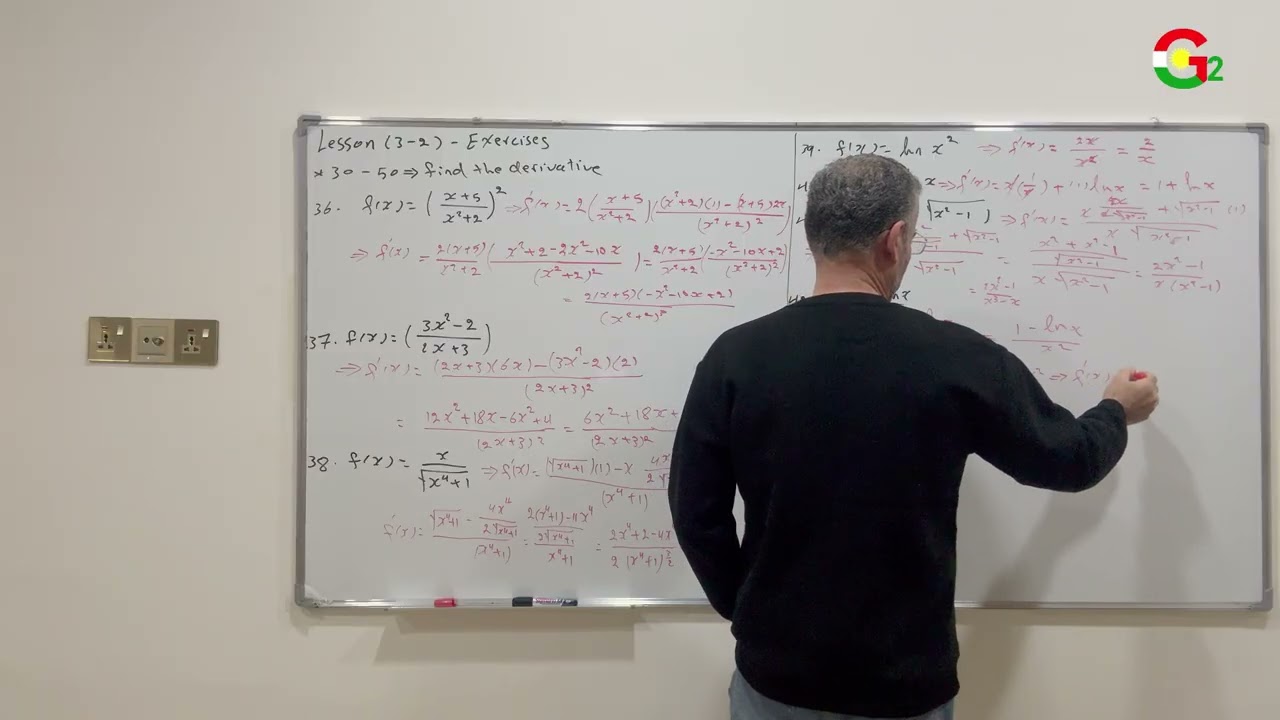 G2
Lesson (3-2) - Exercises
* 30 - 50 ⇒ find the derivative
36. f(x) = ( (x+5)/(x²+2) )² ⇒ f'(x) = 2 ( (x+5)/(x²+2) ) ( ((x²+2)(1) - (x+5)2x)/(x²+2)² )
⇒ f'(x) = 2(x+5)/(x²+2) ( (x²+2-2x²-10x)/(x²+2)² ) = 2(x+5)/(x²+2) ( (-x²-10x+2)/(x²+2)² )
= 2(x+5)(-x²-10x+2)/(x²+2)³
37. f(x) = ( (3x²-2)/(2x+3) )
⇒ f'(x) = ((2x+3)(6x) - (3x²-2)(2))/(2x+3)²
= (12x²+18x-6x²+4)/(2x+3)² = (6x²+18x+)/(2x+3)²
38. f(x) = x/√(x⁴+1) ⇒ f'(x) = ((√(x⁴+1))(1) - x 4x/2√)/(x⁴+1)
f'(x) = (√(x⁴+1) - 4x⁴/(2√(x⁴+1)))/(x⁴+1) = ((2(x⁴+1)-4x⁴)/(2√(x⁴+1)))/(x⁴+1) = (2x⁴+2-4x)/(2(x⁴+1)^(3/2))
39. f(x) = ln x² ⇒ f'(x) = 2x/x² = 2/x
x ⇒ f'(x) = x(1/x) + (1) ln x = 1 + ln x
√(x²-1) ) ⇒ f'(x) =
+ √(x²-1) / √(x²-1) = ((x² + x²-1)/√(x²-1))/(x√(x²-1)) = (2x²-1)/(x(x²-1))
= (2x²-1)/(x³-x)
(1 - ln x)/x²
⇒ f'(x)